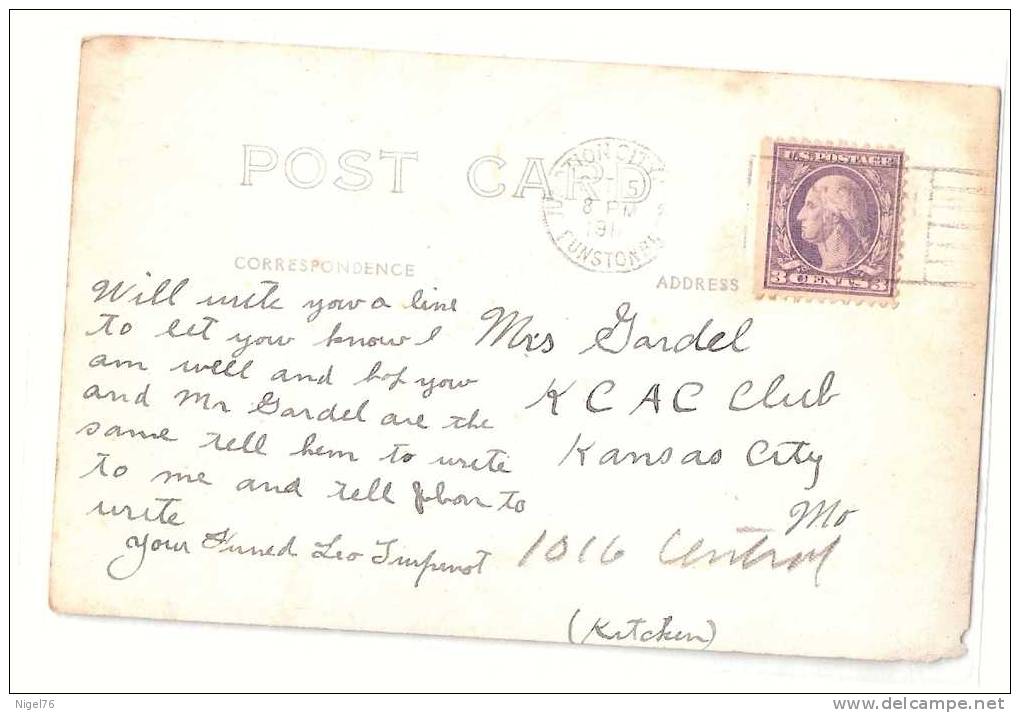 POST CARD
CTION CITY
5
8 PM
191
FUNSTON
U.S. POSTAGE
3 CENTS 3
CORRESPONDENCE
ADDRESS
Will write yow a line
to let yow know I
am well and hop yow
and Mr Gardel are the
same tell hem to write
to me and tell to
write
your Leo
Mrs Gardel
K C A C Club
Kansas City
Mo
1016 Central
(Kitchen)
Nigel76
delcampe.net